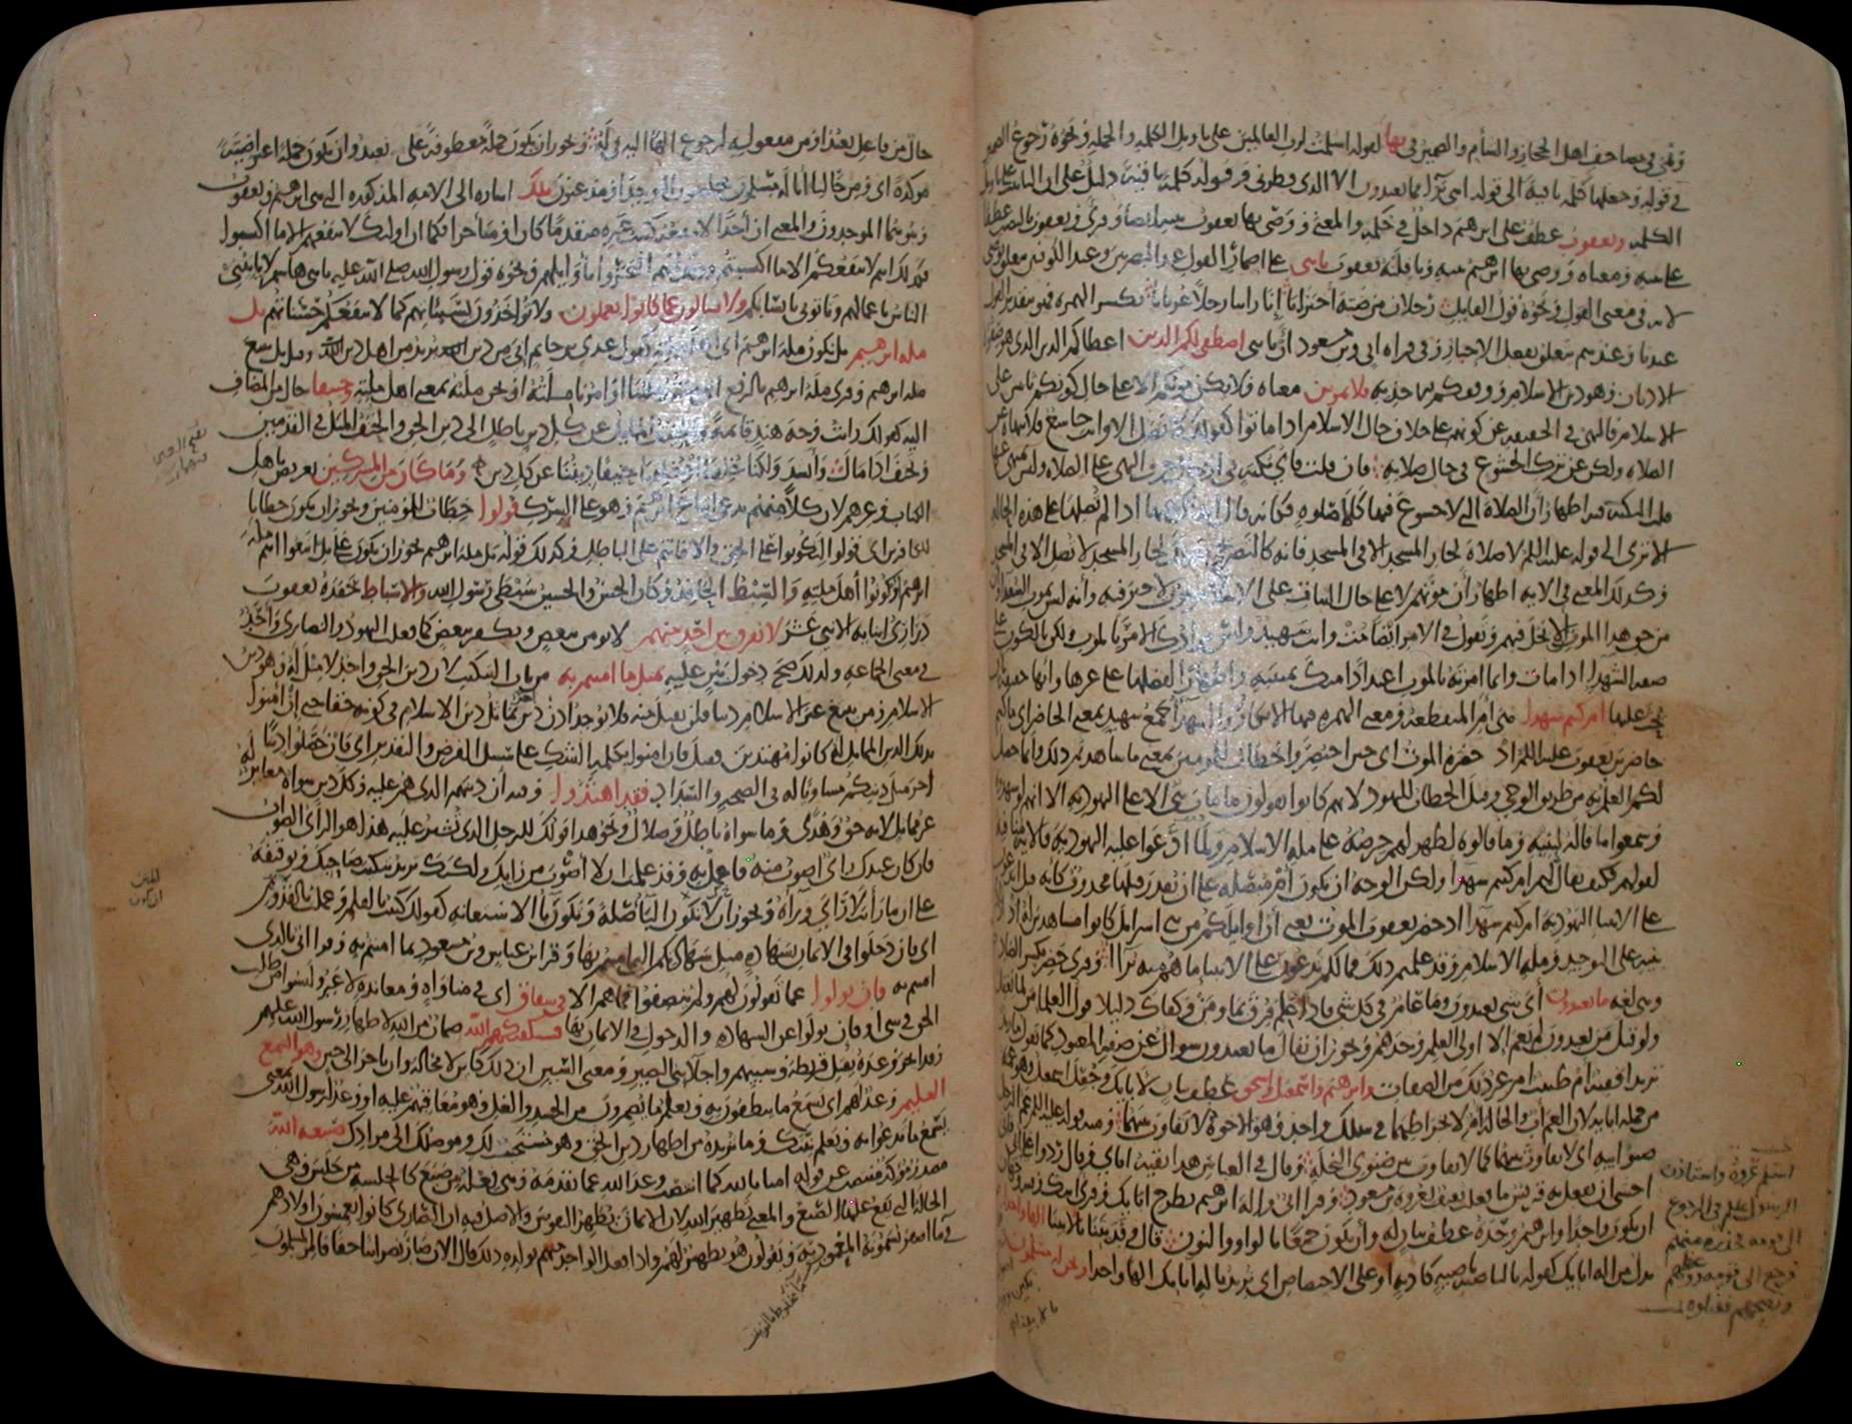 وهي في مصاحف اهل الحجاز والشام والضمير في بها لقوله اسلمت لرب العالمين على تاويل الكلمة والجملة ونحوه رجوع الضمير
في قوله وجعلها كلمة باقية الى قوله انني براء مما تعبدون الا الذي فطرني وقوله كلمة باقية دليل على ان التانيث على تاويل
الكلمة ويعقوب عطف على ابرهيم داخل في حكمه والمعنى ووصى بها يعقوب بنيه ايضا وقرئ ويعقوب بالنصب عطفا
على بنيه ومعناه ووصى بها ابرهيم بنيه ونافلته يعقوب يا بني على اضمار القول عند البصريين وعند الكوفيين متعلق بوصى
لانه في معنى القول ونحوه قول القايل رجلان من ضبة اخبرانا إنا راينا رجلا عريانا بكسر الهمزة فهو بتقدير القول
عندنا وعندهم متعلق بفعل الاخبار وفي قراة ابي وابن مسعود ان يا بني اصطفى لكم الدين اعطاكم الدين الذي هو صفوة
الاديان وهو دين الاسلام ووفقكم للاخذ به فلا تموتن معناه فلا يكن موتكم الا على حال كونكم ثابتين على
الاسلام فالنهي في الحقيقة عن كونهم على خلاف حال الاسلام اذا ماتوا كقولك لا تصل الا وانت خاشع فلا تنهاه عن
الصلاة ولكن عن ترك الخشوع في حال صلاته فان قلت فاي نكتة في ادخال حرف النهي على الصلاة وليس بمنهي عنها
قلت النكتة فيه اظهار ان الصلاة التي لا خشوع فيها كلا صلوة فكانه قال انهاك عنها اذا لم تصلها على هذه الحالة
الا ترى الى قوله عليه السلم لا صلاة لجار المسجد الا في المسجد فانه كالتصريح بقولك لجار المسجد لا تصل الا في المسجد
وكذلك المعنى في الاية اظهار ان موتهم لا على حال الثبات على الاسلام موت لا خير فيه وانه ليس بموت السعداء وان
من حق هذا الموت ان لا يحل فيهم وتقول في الامر ايضا مت وانت شهيد وليس مرادك الامر بالموت ولكن بالكون على
صفة الشهداء اذا مات وانما امرته بالموت اعتدادا منك بميتته واظهارا لفضلها على غيرها وانها حقيقة بان
يحث عليها ام كنتم شهداء هي ام المنقطعة ومعنى الهمزة فيها الانكار والشهداء جمع شهيد بمعنى الحاضر اي ما كنتم
حاضرين يعقوب عليه السلم اذ حضره الموت اي حين احتضر والخطاب للمومنين بمعنى ما شاهدتم ذلك وانما حصل
لكم العلم به من طريق الوحي وقيل الخطاب لليهود لانهم كانوا يقولون ما مات نبي الا على اليهودية الا انهم لو شهدوه
وسمعوا ما قاله لبنيه وما قالوه لظهر لهم حرصه على ملة الاسلام ولما ادعوا عليه اليهودية فالاية منافية
لقولهم فكيف يقال لهم ام كنتم شهداء ولكن الوجه ان تكون ام متصلة على ان يقدر قبلها محذوف كانه قيل اتدعون
على الانبيا اليهودية ام كنتم شهداء اذ حضر يعقوب الموت يعني ان اوايلكم من بني اسرايل كانوا مشاهدين له اذ اراد
بنيه على التوحيد وملة الاسلام وقد علمتم ذلك فما لكم تدعون على الانبيا ما هم منه برآء وقرئ حضر بكسر الضاد
وهي لغة ما تعبدون اي شي تعبدون وما عام في كل شي فاذا علم فرق بما ومن وكفاك دليلا قول العلما من لما يعقل
ولو قيل من تعبدون لم يعم الا اولي العلم وحدهم ويجوز ان يقال ما تعبدون سوال عن صفة المعبود كما تقول ما زيد
تريد افقيه ام طبيب ام غير ذلك من الصفات وابرهيم واسمعيل واسحق عطف بيان لابايك وجعل اسمعيل وهو عمه
من جملة ابايه لان العم اب والخالة ام لانخراطهما في سلك واحد وهو الاخوة لا تفاوت بينهما ومنه قوله عليه السلم عم الرجل
صنو ابيه اي لا تفاوت بينهما كما لا تفاوت بين صنوي النخلة وقال في العباس هذا بقية اباي وقال ردوا علي ابي فاني
اخشى ان تفعل به قريش ما فعلت ثقيف بعروة بن مسعود وقرا ابي واله ابرهيم بطرح ابايك وقرئ ابيك وفيه وجهان
ان يكون واحدا وابرهيم وحده عطف بيان له وان يكون جمعا بالواو والنون قال وفديننا بالابينا الها واحدا
بدل من اله ابايك كقوله بالناصية ناصية كاذبة او على الاختصاص اي نريد باله ابايك الها واحدا ونحن له مسلمون
اسلم عروة واستاذن
الرسول عليه السلم في الرجوع
الى قومه
فرجع الى قومه ودعاهم
فقتلوه
حال من فاعل نعبد او من مفعوله لرجوع الها اليه في له ويجوز ان تكون جملة معطوفة على نعبد وان تكون جملة اعتراضية
موكدة اي ومن حالنا انا له مسلمون مخلصون التوحيد او مذعنون تلك اشارة الى الامة المذكورة التي هي ابرهيم ويعقوب
وبنوهما الموحدون والمعنى ان احدا لا ينفعه كسب غيره متقدما كان او متاخرا فكما ان اولئك لا ينفعهم الا ما اكتسبوا
فكذلك انتم لا ينفعكم الا ما اكتسبتم وذلك انهم افتخروا باوايلهم ونحوه قول رسول الله صلى الله عليه يا بني هاشم لا ياتيني
الناس باعمالهم وتاتوني بانسابكم ولا تسالون عما كانوا يعملون ولا تواخذون بسيئاتهم كما لا تنفعكم حسناتهم بل
ملة ابرهيم بل نكون ملة ابرهيم اي اهل ملته كقول عدي بن حاتم اني من دين يريد من اهل دين وقيل بل نتبع
ملة ابرهيم وقرئ ملة ابرهيم بالرفع اي ملته ملتنا او امرنا ملته او نحن ملته بمعنى اهل ملته وحنيفا حال من المضاف
اليه كقولك رايت وجه هند قايمة والحنيف المايل عن كل دين باطل الى دين الحق والحنف الميل في القدمين
وتحنف اذا مال وانشد ولكنا خلقنا اذ خلقنا حنيفا ديننا عن كل دين وما كان من المشركين تعريض باهل
الكتاب وغيرهم لان كلا منهم يدعي اتباع ابرهيم وهو على الشرك قولوا خطاب للمومنين ويجوز ان يكون خطابا
للكافرين اي قولوا لتكونوا على الحق والا فانتم على الباطل وكذلك قوله بل ملة ابرهيم يجوز ان يكون على بل اتبعوا انتم ملة
ابرهيم او كونوا اهل ملته والسبط الحافد وكان الحسن والحسين سبطي رسول الله والاسباط حفدة يعقوب
ذراري ابنايه الاثني عشر لا نفرق بين احد منهم لا نومن ببعض ونكفر ببعض كما فعلت اليهود والنصارى واحد
في معنى الجماعة ولذلك صح دخول بين عليه بمثل ما امنتم به من باب التبكيت لان دين الحق واحد لا مثل له وهو دين
الاسلام ومن يبتغ غير الاسلام دينا فلن يقبل منه فلا يوجد اذن دين اخر يماثل دين الاسلام في كونه حقا حتى ان امنوا
بذلك الدين المماثل له كانوا مهتدين فقيل فان امنوا بكلمة الشك على سبيل الفرض والتقدير اي فان حصلوا دينا
اخر مثل دينكم مساويا له في الصحة والسداد فقد اهتدوا وفيه ان دينهم الذي هم عليه وكل دين سواه مغاير له
غير مماثل لانه حق وهدى وما سواه باطل وضلال ونحو هذا قولك للرجل الذي تشير عليه هذا هو الراي الصواب
فان كان عندك راي اصوب منه فاعمل به وقد علمت ان لا اصوب من رايك ولكنك تريد تبكيت صاحبك وتوقيفه
على ان ما رايت لا راي وراه ويجوز ان لا تكون البا صلة وتكون با الاستعانة كقولك كتبت بالقلم وعملت بالقدوم
اي فان دخلوا في الايمان بشهادة مثل شهادتكم التي امنتم بها وقرا ابن عباس وابن مسعود بما امنتم به وقرا ابي بالذي
امنتم به وان تولوا عما تقولون لهم ولم ينصفوا فما هم الا في شقاق اي في مناواة ومعاندة لا غير وليسوا من طلب
الحق في شي او وان تولوا عن الشهادة والدخول في الايمان بها فسيكفيكهم الله ضمان من الله لاظهار رسول الله عليهم
وقد انجز وعده بقتل قريظة وسبيهم واجلا بني النضير ومعنى السين ان ذلك كاين لا محالة وان تاخر الى حين وهو السميع
العليم وعيد لهم اي يسمع ما ينطقون به ويعلم ما يضمرون من الحسد والغل وهو معاقبهم عليه او وعد لرسول الله بمعنى
يسمع ما تدعو به ويعلم نيتك وما تريده من اظهار دين الحق وهو مستجيب لك وموصلك الى مرادك صبغة الله
مصدر موكد منتصب عن قوله امنا بالله كما انتصب وعد الله عما تقدمه وهي فعلة من صبغ كالجلسة من جلس وهي
الحالة التي يقع عليها الصبغ والمعنى تطهير الله لان الايمان يطهر النفوس والاصل فيه ان النصارى كانوا يغمسون اولادهم
في ما اصفر يسمونه المعمودية ويقولون هو تطهير لهم واذا فعل الواحد منهم بولده ذلك قال الان صار نصرانيا حقا فامر المسلمون